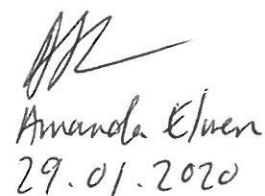 Amanda Elwen
29.01.2020